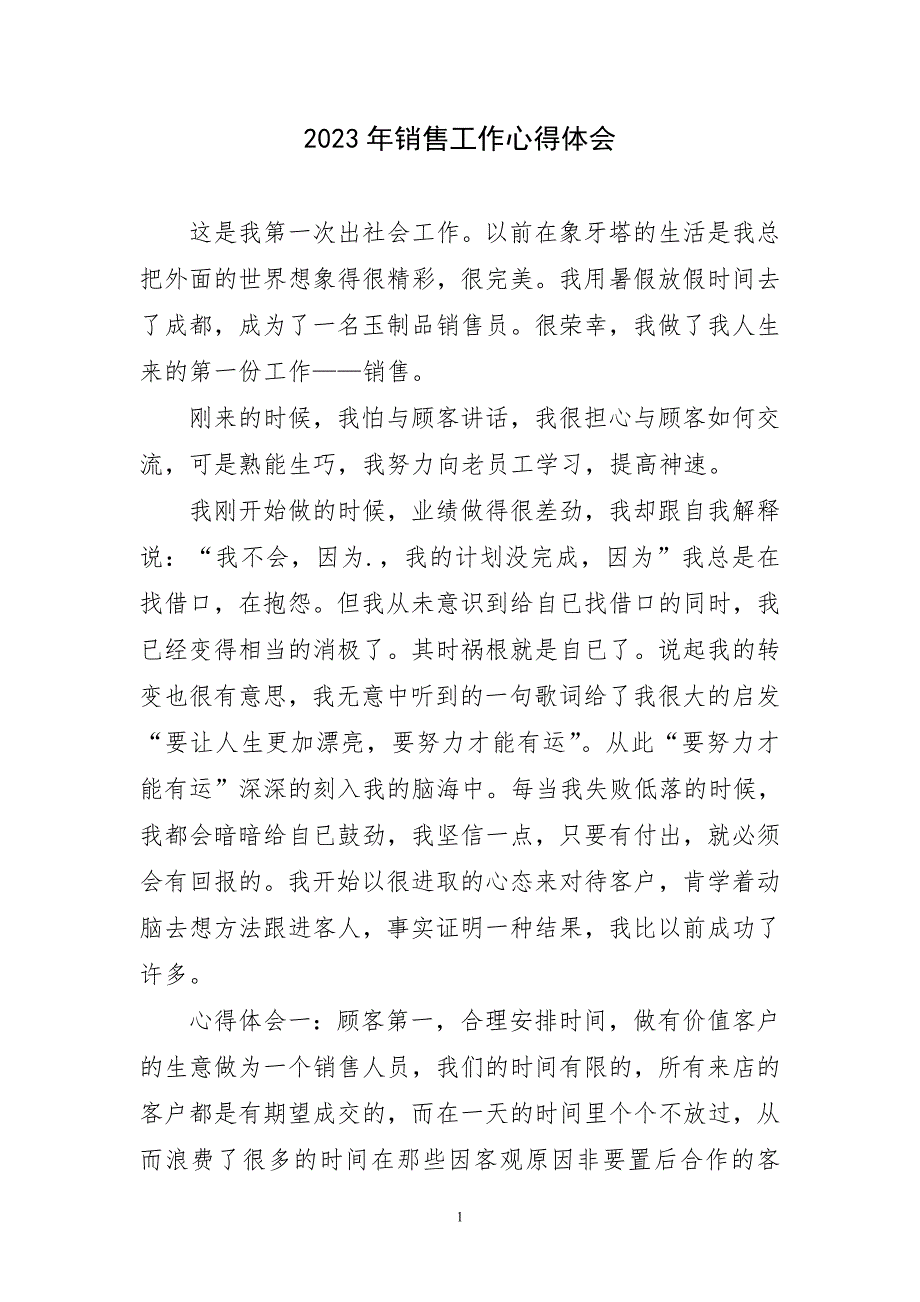 2023 年销售工作心得体会
这是我第一次出社会工作。以前在象牙塔的生活是我总
把外面的世界想象得很精彩，很完美。我用暑假放假时间去
了成都，成为了一名玉制品销售员。很荣幸，我做了我人生
来的第一份工作——销售。
刚来的时候，我怕与顾客讲话，我很担心与顾客如何交
流，可是熟能生巧，我努力向老员工学习，提高神速。
我刚开始做的时候，业绩做得很差劲，我却跟自我解释
说：“我不会，因为.，我的计划没完成，因为”我总是在
找借口，在抱怨。但我从未意识到给自已找借口的同时，我
已经变得相当的消极了。其时祸根就是自已了。说起我的转
变也很有意思，我无意中听到的一句歌词给了我很大的启发
“要让人生更加漂亮，要努力才能有运”。从此“要努力才
能有运”深深的刻入我的脑海中。每当我失败低落的时候，
我都会暗暗给自已鼓劲，我坚信一点，只要有付出，就必须
会有回报的。我开始以很进取的心态来对待客户，肯学着动
脑去想方法跟进客人，事实证明一种结果，我比以前成功了
许多。
心得体会一：顾客第一，合理安排时间，做有价值客户
的生意做为一个销售人员，我们的时间有限的，所有来店的
客户都是有期望成交的，而在一天的时间里个个不放过，从
而浪费了很多的时间在那些因客观原因非要置后合作的客
1